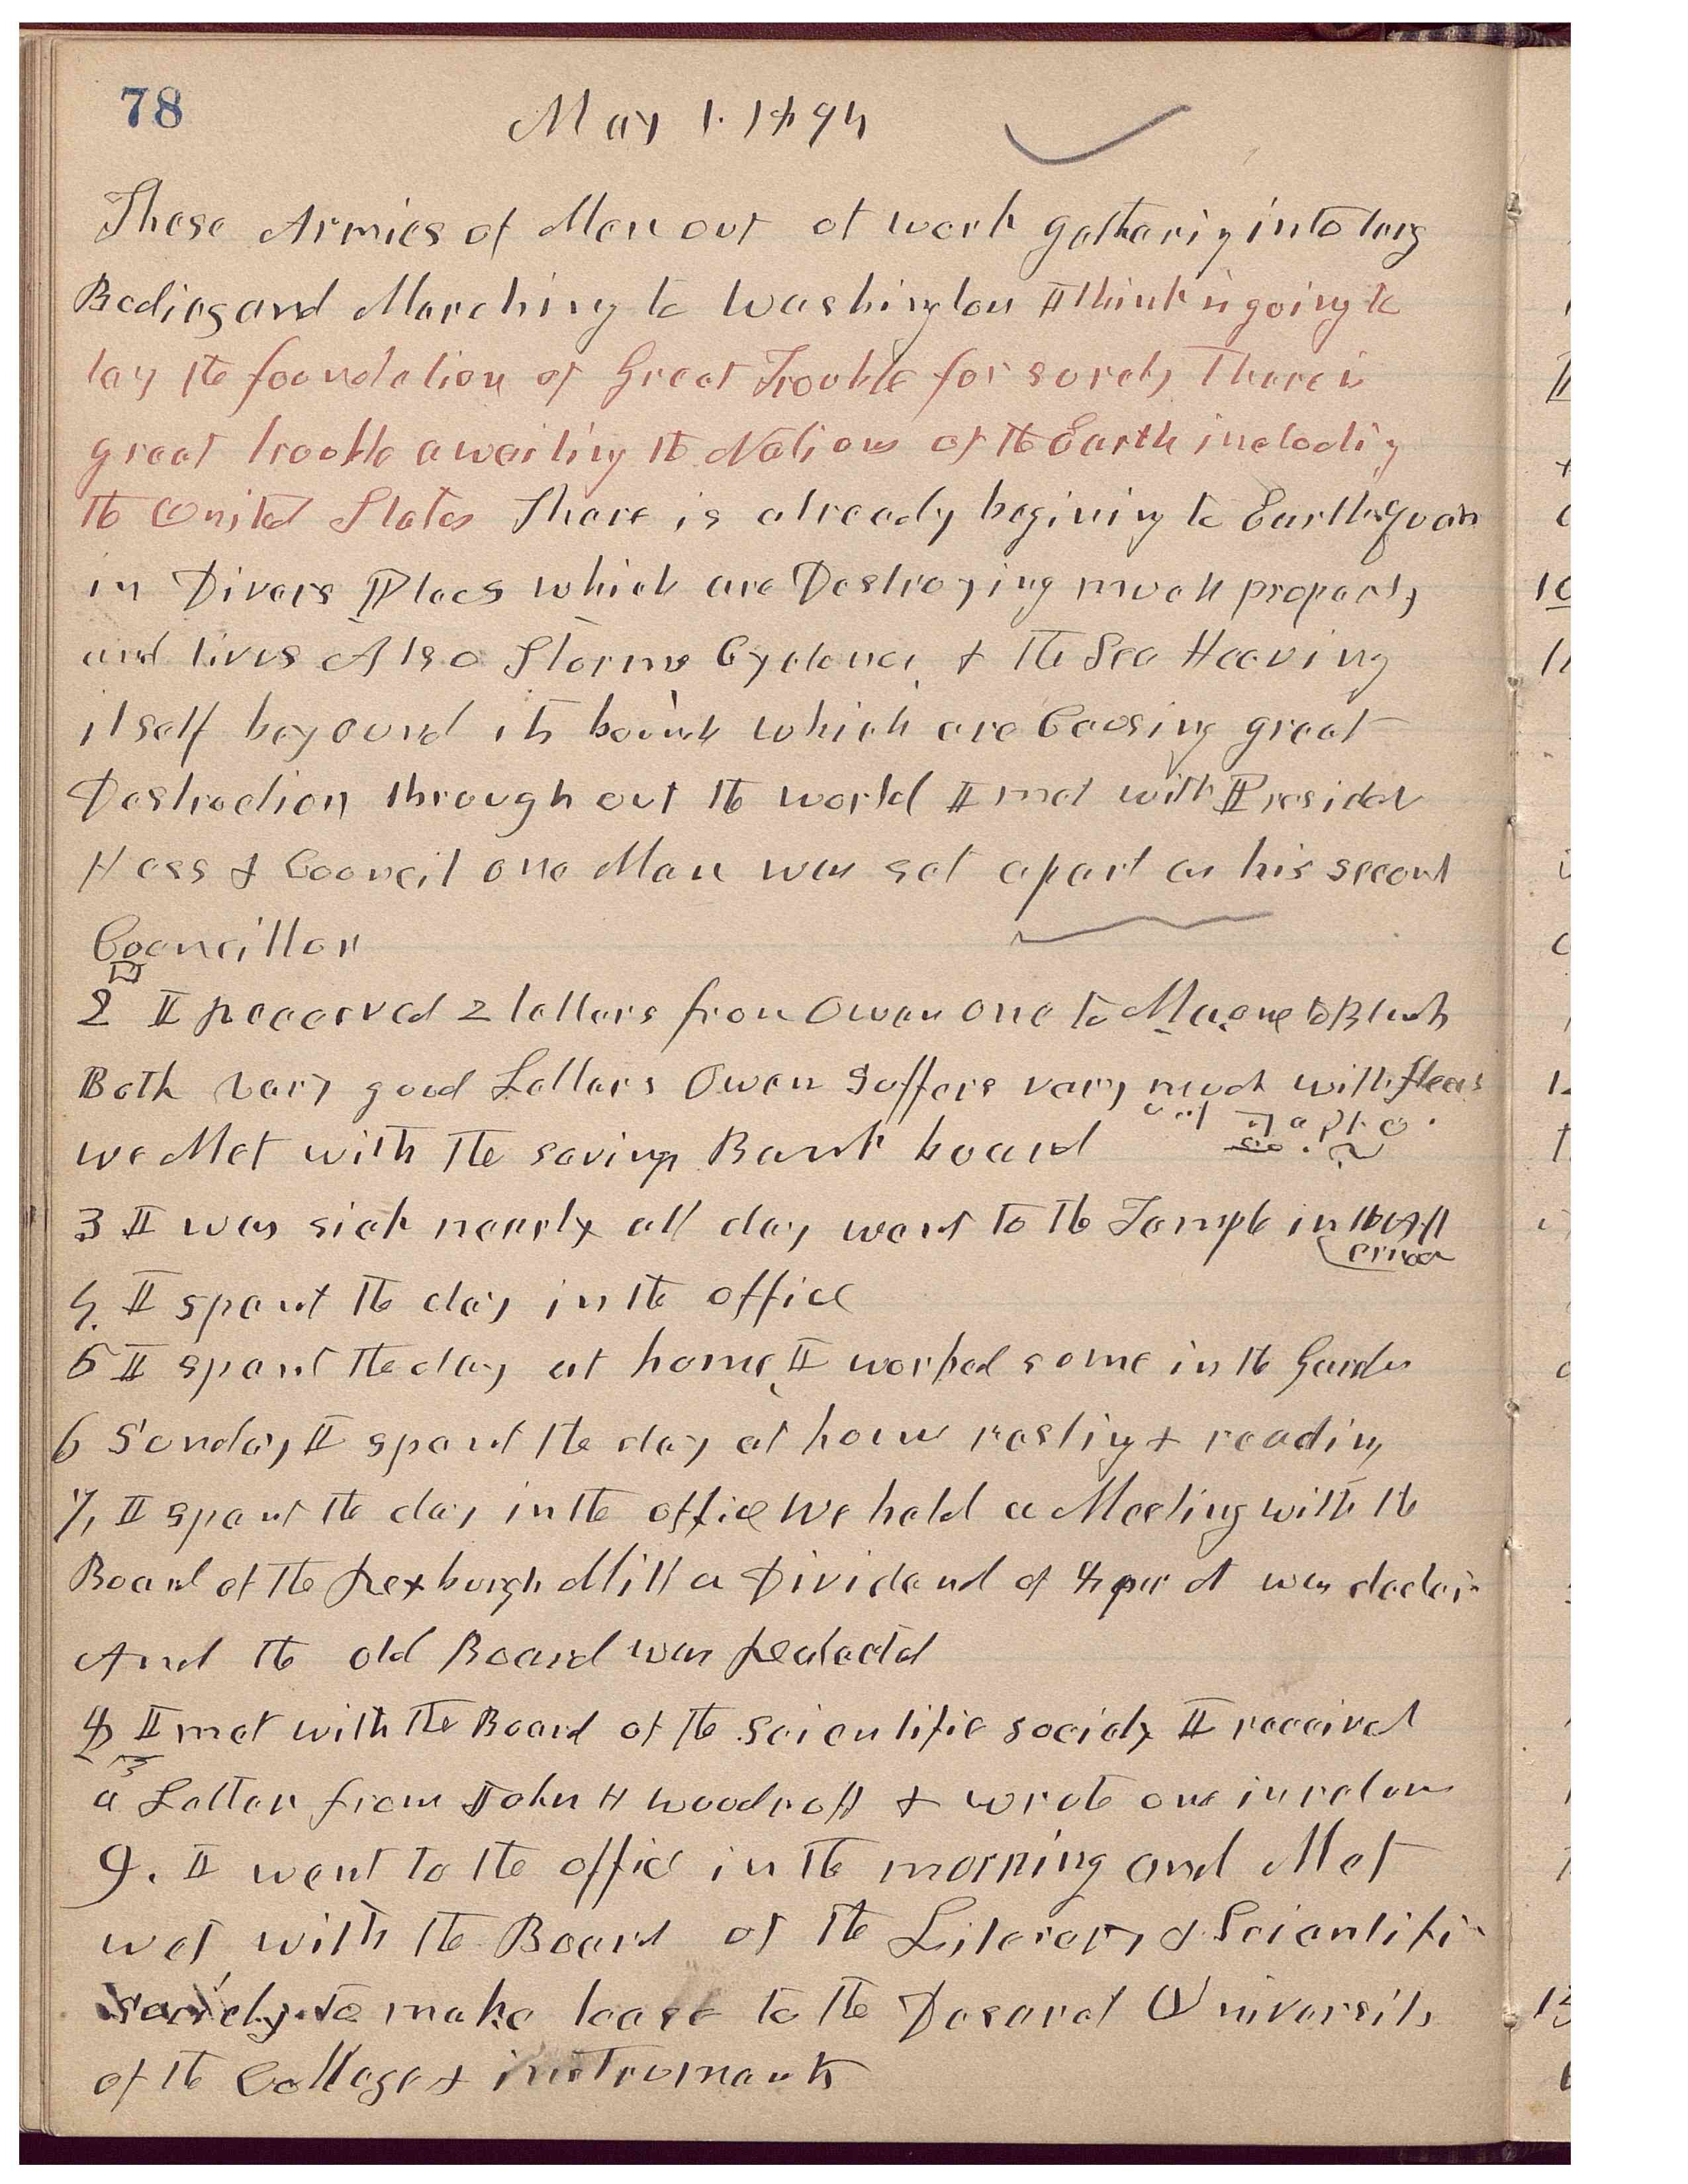 78
May 1. 1894
These Armies of Men out of work gathering into larg
Bodies and Marching to Washington I think is going to
lay the foundation of Great Trouble for surely There is
great trouble awaiting the Nations of the Earth includig
the United States There is already begining to Earthquak
in Divers Places which are Destroying much property
and lives Also Storms Cyclones & the Sea Heaving
itself beyound its bounds which are Causing great
Destruction throughout the world I met with Presidet
Hess & Council one Man was set apart as his second
Councillor
2 I receeved 2 letters from Owen one to to Blanch
Both very good Letters Owen Suffers very much with fleas
we Met with the savings Bank board
3 I was sick nearly all day went to the Temple in the Aft
ernoon
4. I spent the day in the office
5 I spent the day at home, I worked some in the Garden
6 Sunday I spent the day at home resting & reading
7, I spent the day in the office We held a Meeting with the
Board of the Rexburgh Mill a Dividend of 4 per ct was declair
And the old Board was Reelectd
8 I met with the Board of the Scientific society I received
a Letter from John H Woodruff & wrote one in return
9. I went to the office in the morning and Met
met with the Board of the Literary & Scientifi
society to make lease to the Deseret University
of the College & instruments